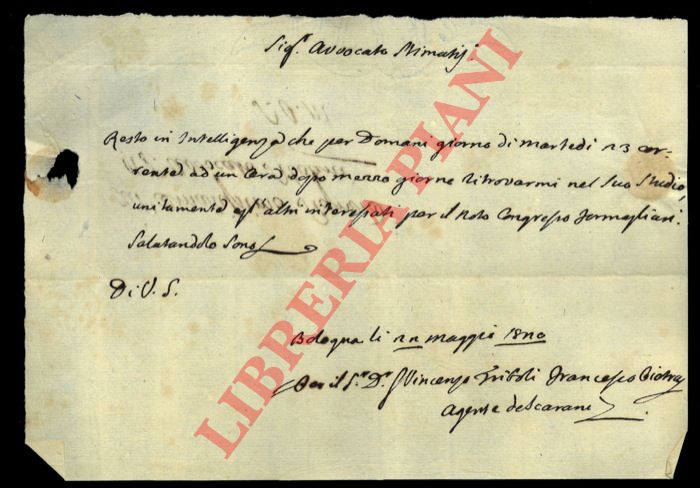 Sig.r Avvocato
Resto in Intelligenza che per Domani giorno di Martedi 23 cor-
rente ad un ora dopo mezzo giorno ritrovarmi nel suo Studio,
unitamente agl'altri interessati per il Noto Congresso Formagliari.
Salutandolo Sono
Di V. S.
Bologna li 22 Maggio 1820
Per il S.r D.r Vincenzo Triboli Francesco
Agente de Scarani
LIBRERIA PIANI